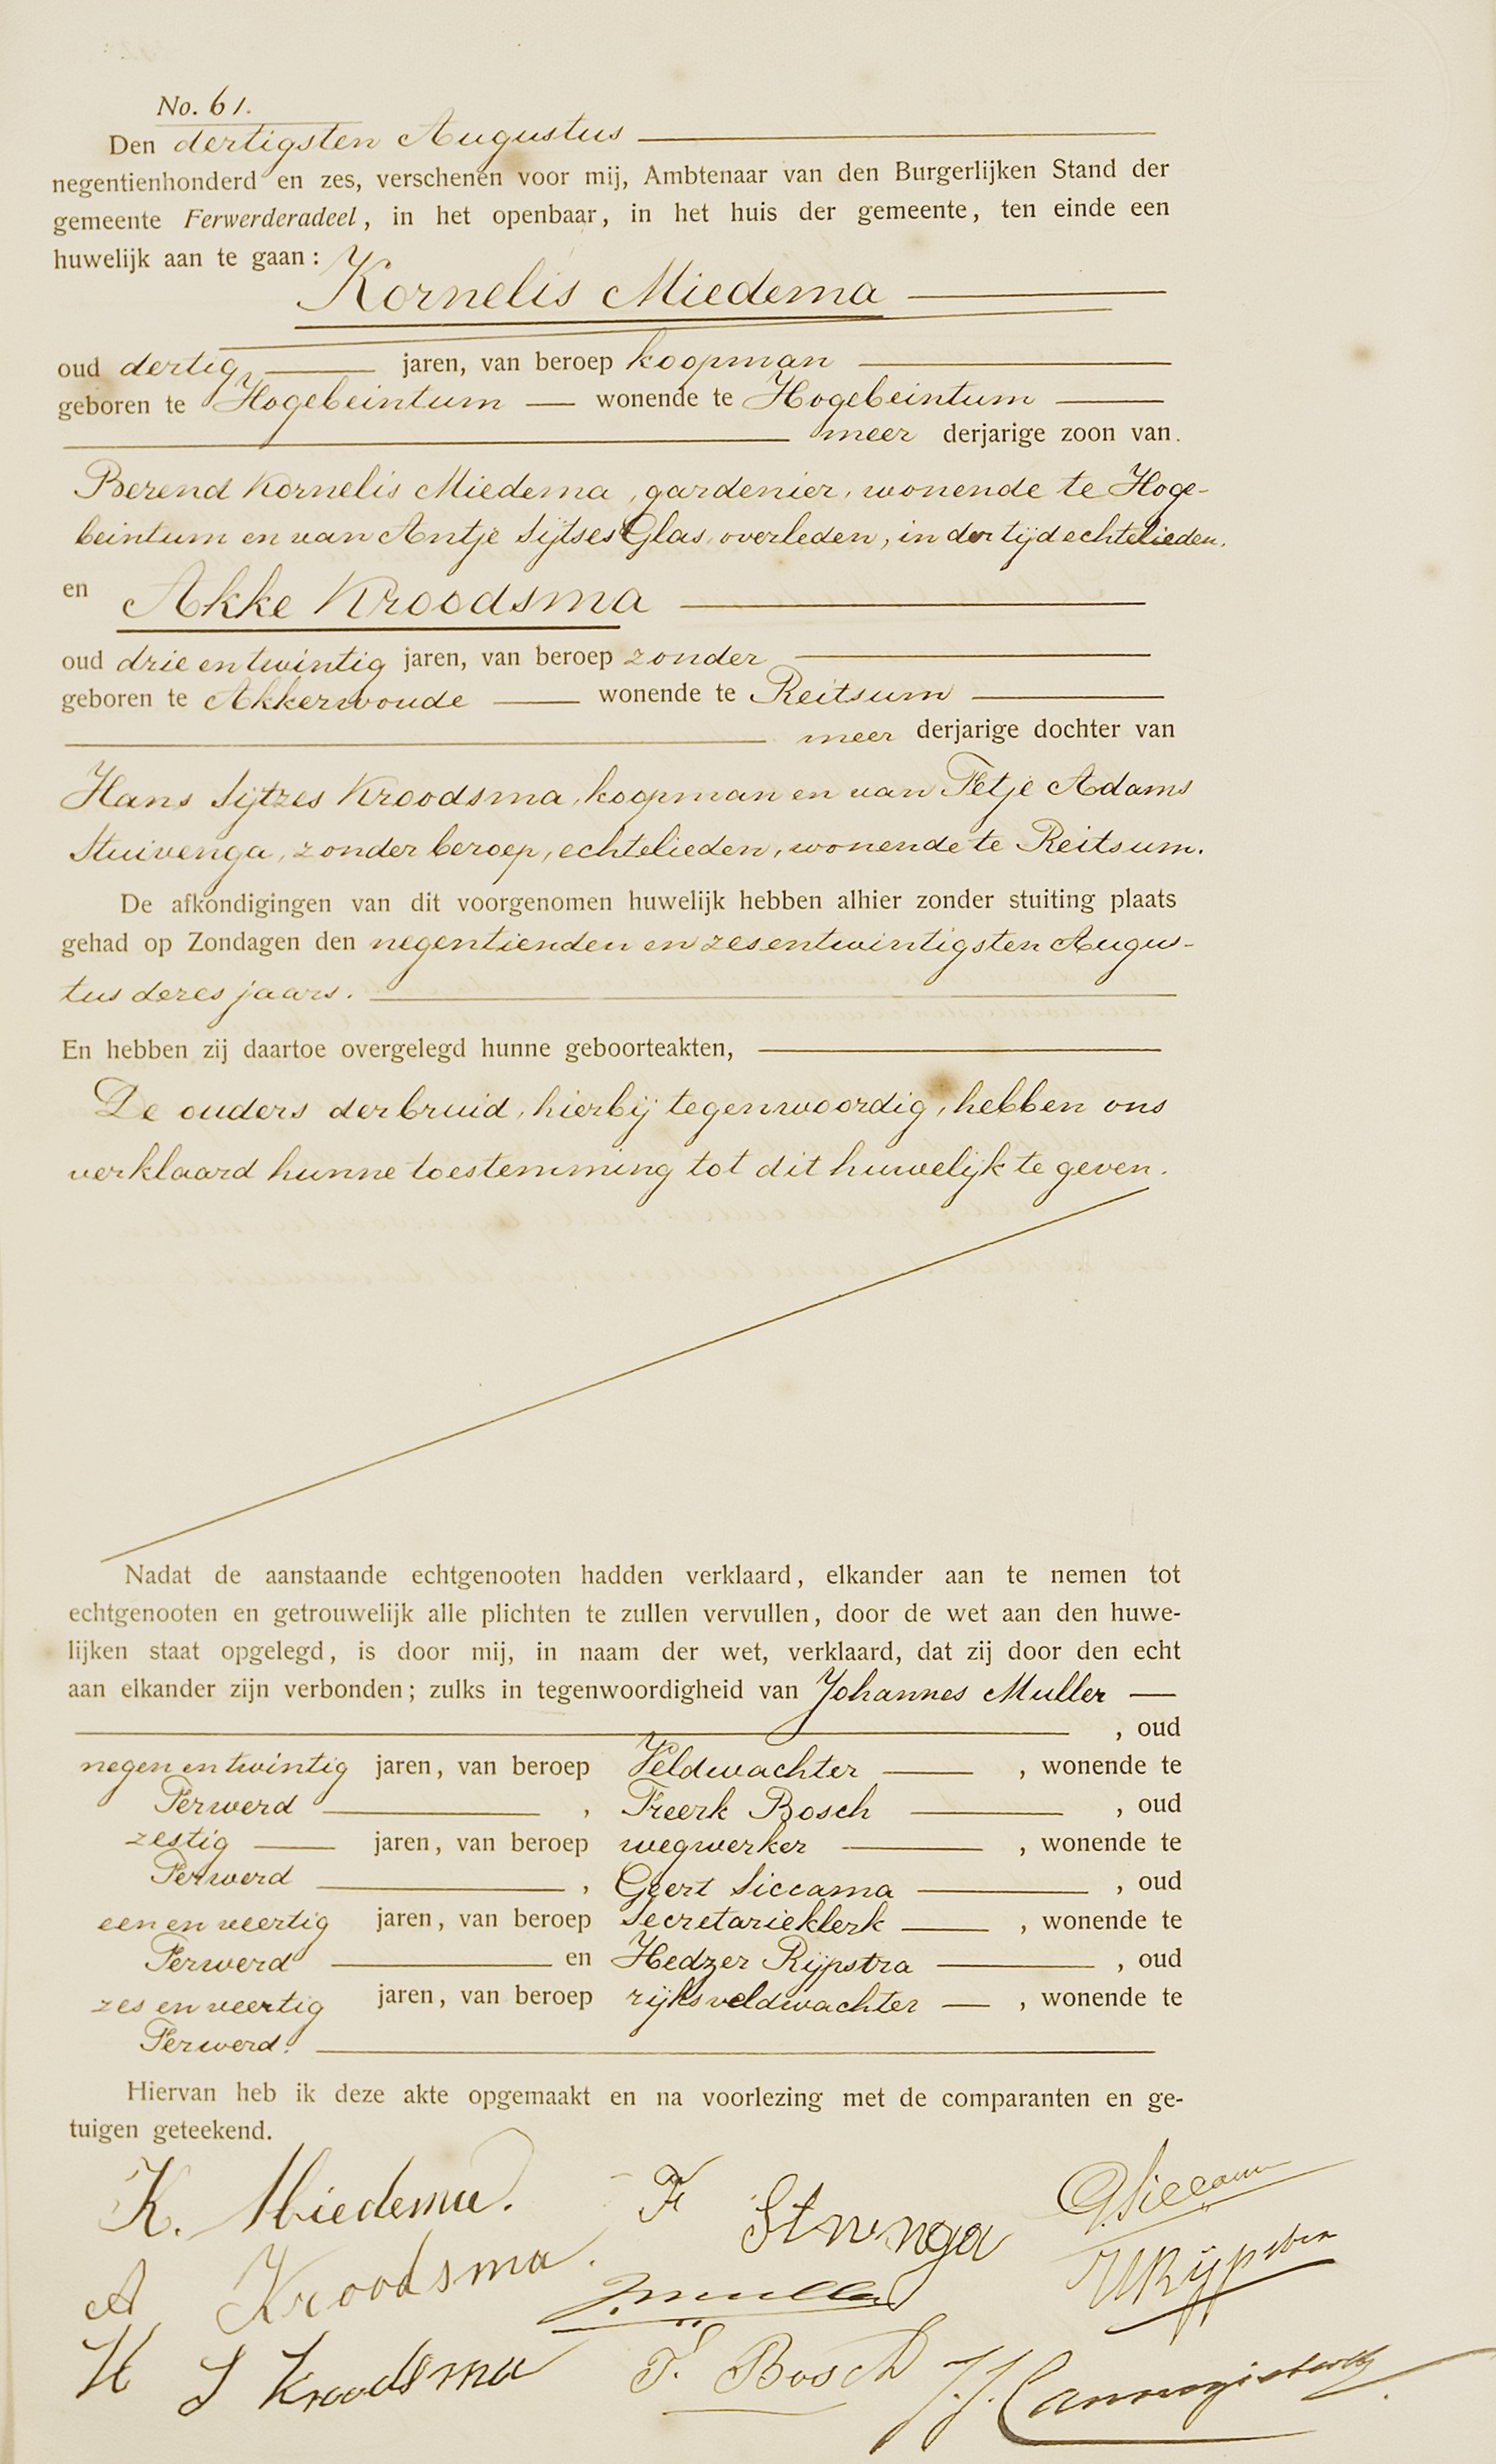 No. 61.
Den dertigsten Augustus
negentienhonderd en zes, verschenen voor mij, Ambtenaar van den Burgerlijken Stand der
gemeente Ferwerderadeel, in het openbaar, in het huis der gemeente, ten einde een
huwelijk aan te gaan:
Kornelis Miedema
oud dertig jaren, van beroep koopman
geboren te Hogebeintum wonende te Hogebeintum
meer derjarige zoon van
Berend Kornelis Miedema, gardenier, wonende te Hoge-
beintum en van Antje Sijtses Glas, overleden, in der tijd echtelieden.
en Akke Kroodsma
oud drie en twintig jaren, van beroep zonder
geboren te Akkerwoude wonende te Reitsum
meer derjarige dochter van
Hans Sijtzes Kroodsma, koopman en van Fetje Adams
Stuivenga, zonder beroep, echtelieden, wonende te Reitsum.
De afkondigingen van dit voorgenomen huwelijk hebben alhier zonder stuiting plaats
gehad op Zondagen den negentienden en zesentwintigsten Augus-
tus dezes jaars.
En hebben zij daartoe overgelegd hunne geboorteakten,
De ouders der bruid, hierbij tegenwoordig, hebben ons
verklaard hunne toestemming tot dit huwelijk te geven.
Nadat de aanstaande echtgenooten hadden verklaard, elkander aan te nemen tot
echtgenooten en getrouwelijk alle plichten te zullen vervullen, door de wet aan den huwe-
lijken staat opgelegd, is door mij, in naam der wet, verklaard, dat zij door den echt
aan elkander zijn verbonden; zulks in tegenwoordigheid van Johannes Muller
, oud
negen en twintig jaren, van beroep Veldwachter, wonende te
Ferwerd, Freerk Bosch, oud
zestig jaren, van beroep wegwerker, wonende te
Ferwerd, Geert Siccama, oud
een en veertig jaren, van beroep Secretarieklerk, wonende te
Ferwerd en Hedzer Rijpstra, oud
zes en veertig jaren, van beroep rijksveldwachter, wonende te
Ferwerd.
Hiervan heb ik deze akte opgemaakt en na voorlezing met de comparanten en ge-
tuigen geteekend.
K. Miedema. F Stuvnga G. Siccama
A Kroodsma. J. Muller HRijpstra
H S Kroodsma F. Bosch